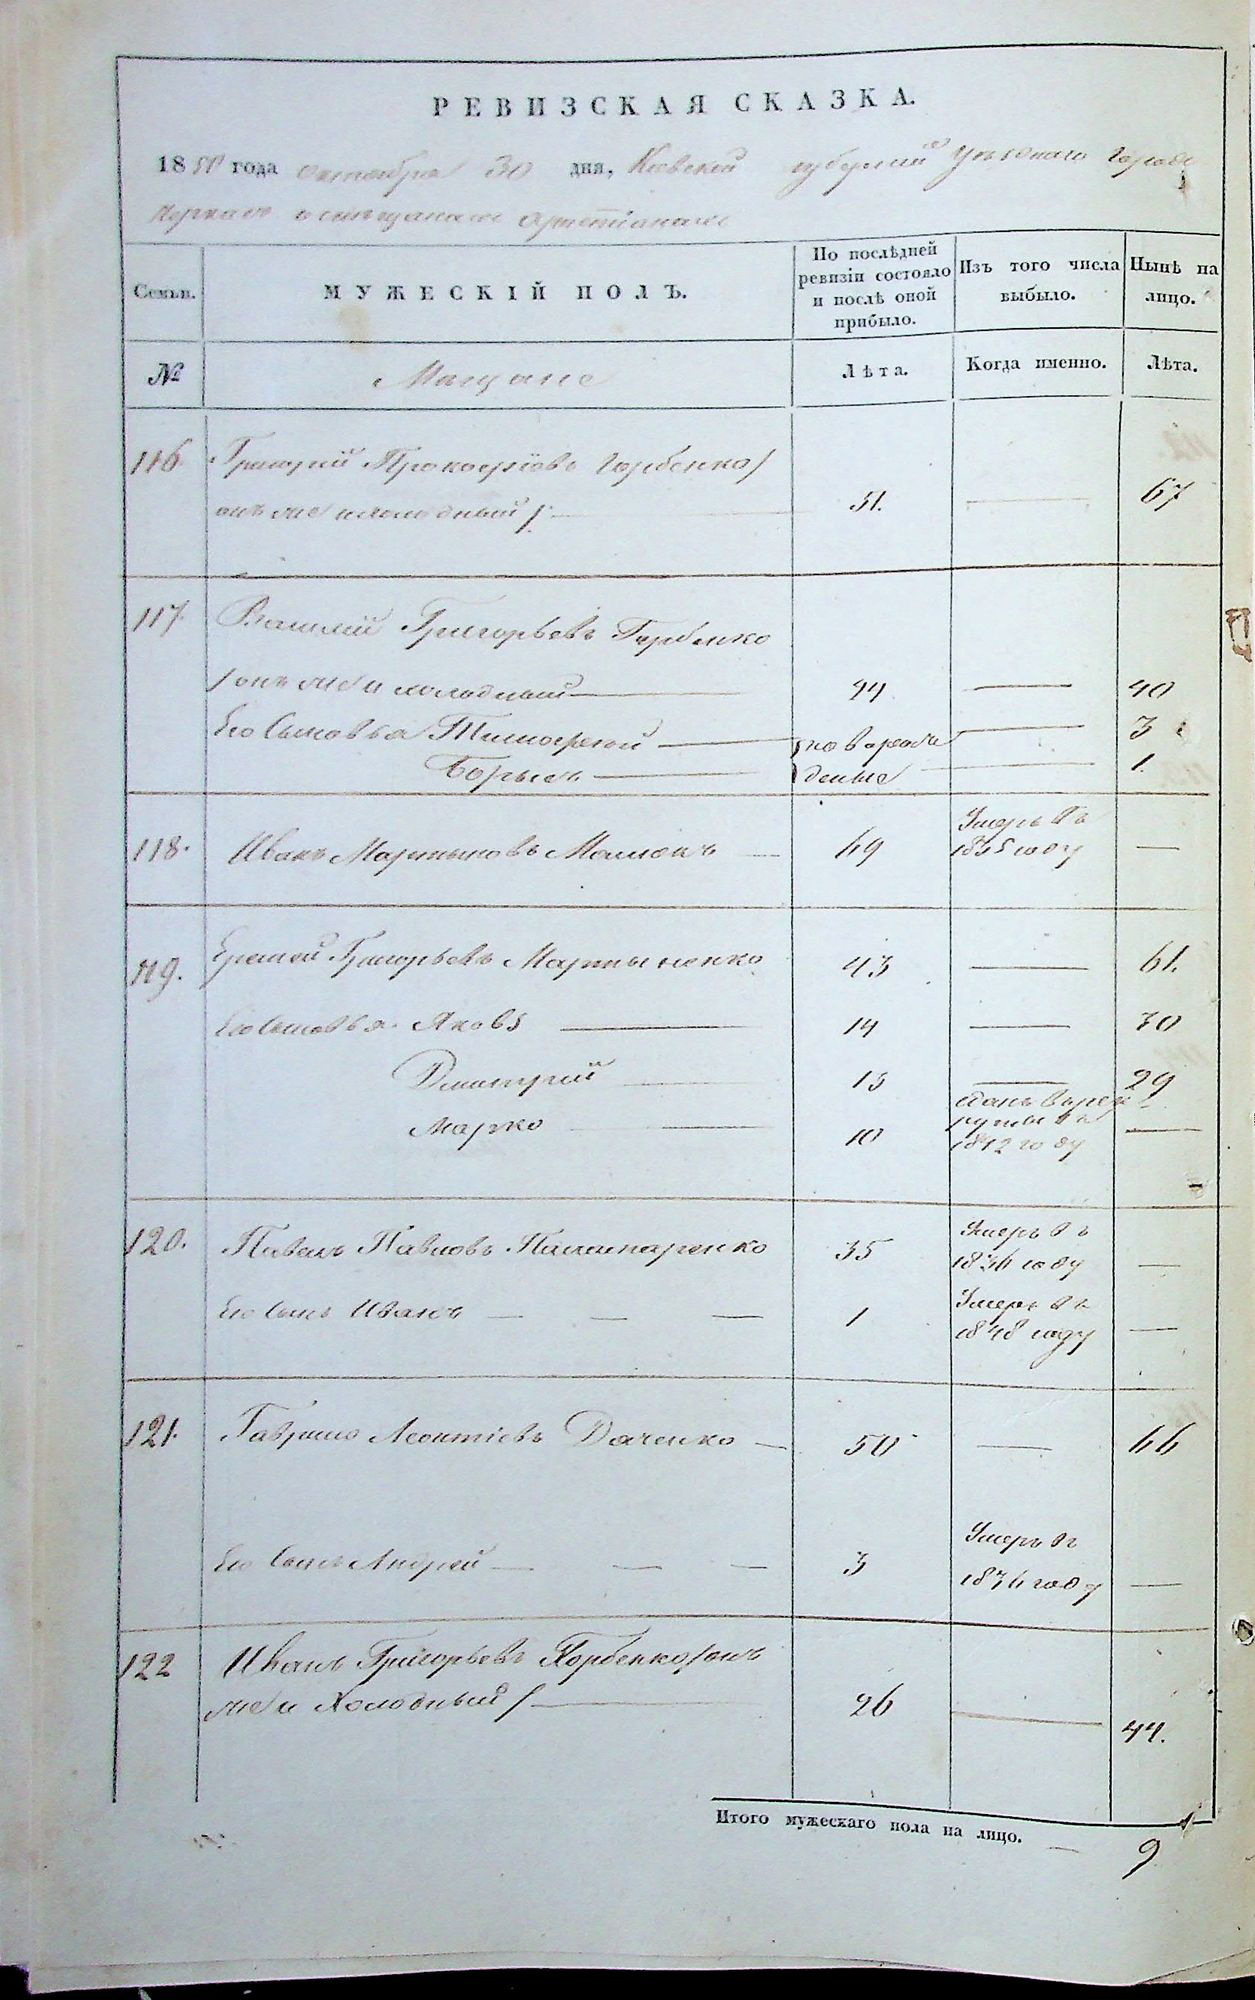 РЕВИЗСКАЯ СКАЗКА.
1850 года октября 30 дня, Киевской губернии уѣзднаго города
Черкасъ о мѣщанахъ христіанахъ
Семьи.
МУЖЕСКІЙ ПОЛЪ.
По послѣдней ревизіи состояло и послѣ оной прибыло.
Изъ того числа выбыло.
Нынѣ на лицо.
№
Мѣщане
Лѣта.
Когда именно.
Лѣта.
116. Григорий Прокофіевъ Горбенко /
онъ же и холодный / 51. — 67
117. Василий Григорьевъ Горбенко
/ онъ же и холодный — 24 — 40
Его Сыновья Тимофей — новорож — 3
Борысъ — денные — 1.
118. Иванъ Мартыновъ Мамонъ — 69 Умеръ въ 1835 году —
119. Еремей Григорьевъ Мартыненко 43 — 61.
Его Сыновья Яковъ — 14 — 30
Дмитрий — 13 — 29
Марко — 10 сданъ въ рекруты въ 1842 году —
120. Павелъ Павловъ Паламаренко 35 Умеръ въ 1836 году —
Его Сынъ Иванъ — — — 1 Умеръ въ 1848 году —
121. Гаврыло Леонтіевъ Даченко — 50 — 66
Его Сынъ Андрей — — — 3 Умеръ въ 1836 году —
122 Иванъ Григорьевъ Горбенко / онъ
же и Холодный / — 26 — 44.
Итого мужескаго пола на лицо. — 9